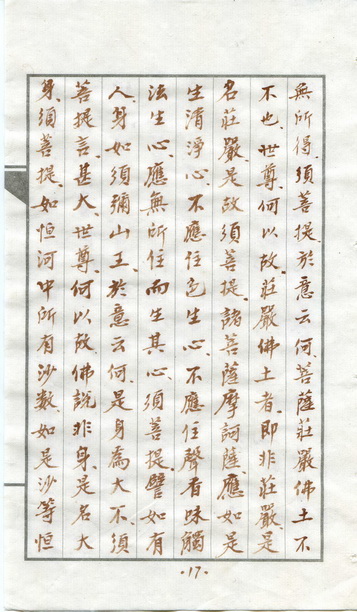 無所得、須菩提、於意云何、菩薩莊嚴佛土不
不也、世尊、何以故、莊嚴佛土者、即非莊嚴、是
名莊嚴、是故須菩提、諸菩薩摩訶薩、應如是
生清淨心、不應住色生心、不應住聲香味觸
法生心、應無所住而生其心、須菩提、譬如有
人、身如須彌山王、於意云何、是身為大不、須
菩提言、甚大、世尊、何以故、佛說非身、是名大
身、須菩提、如恒河中所有沙數、如是沙等恒
·17·